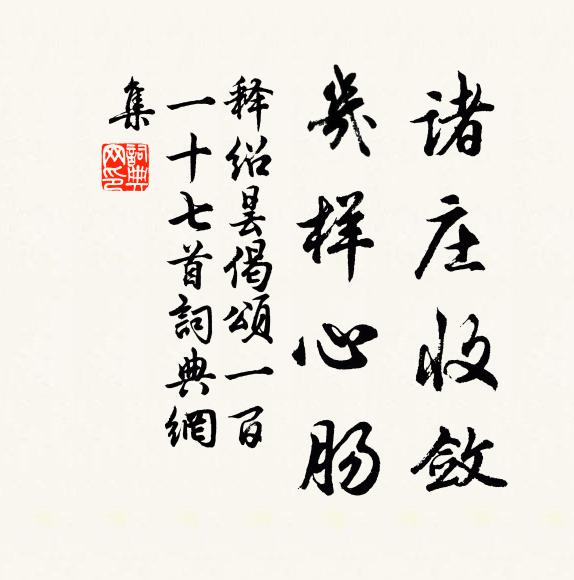 诸庄收敛
几样心肠
释绍昙偈颂一百
一十七首詞典網
集
詞典網印